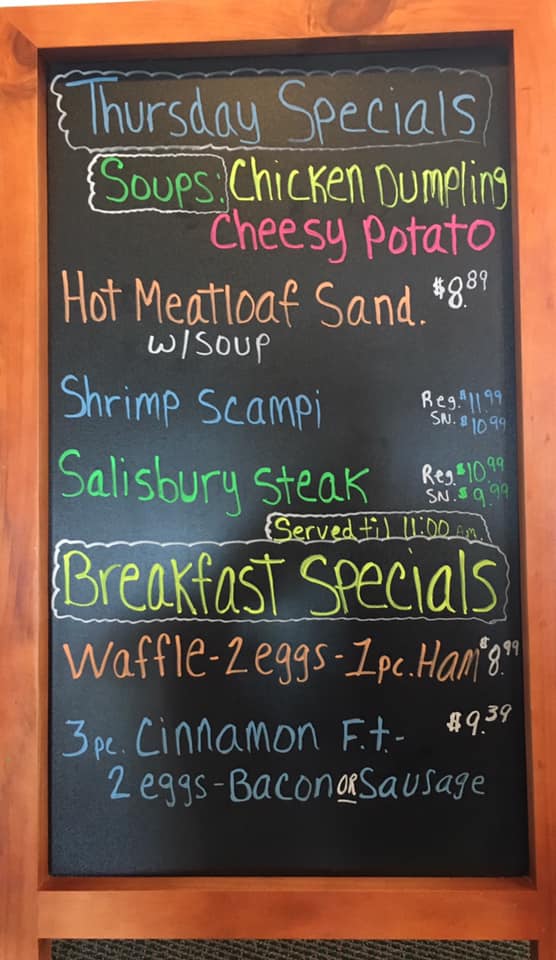 Thursday Specials
Soups: Chicken Dumpling
Cheesy Potato
Hot Meatloaf Sand. $8.89
w/soup
Shrimp Scampi Reg. $11.99
SN. $10.99
Salisbury Steak Reg. $10.99
SN. $9.99
Served til 11:00 a.m.
Breakfast Specials
Waffle-2 eggs-1pc. Ham $8.99
3pc. Cinnamon F.t.- $9.39
2 eggs-Bacon OR Sausage